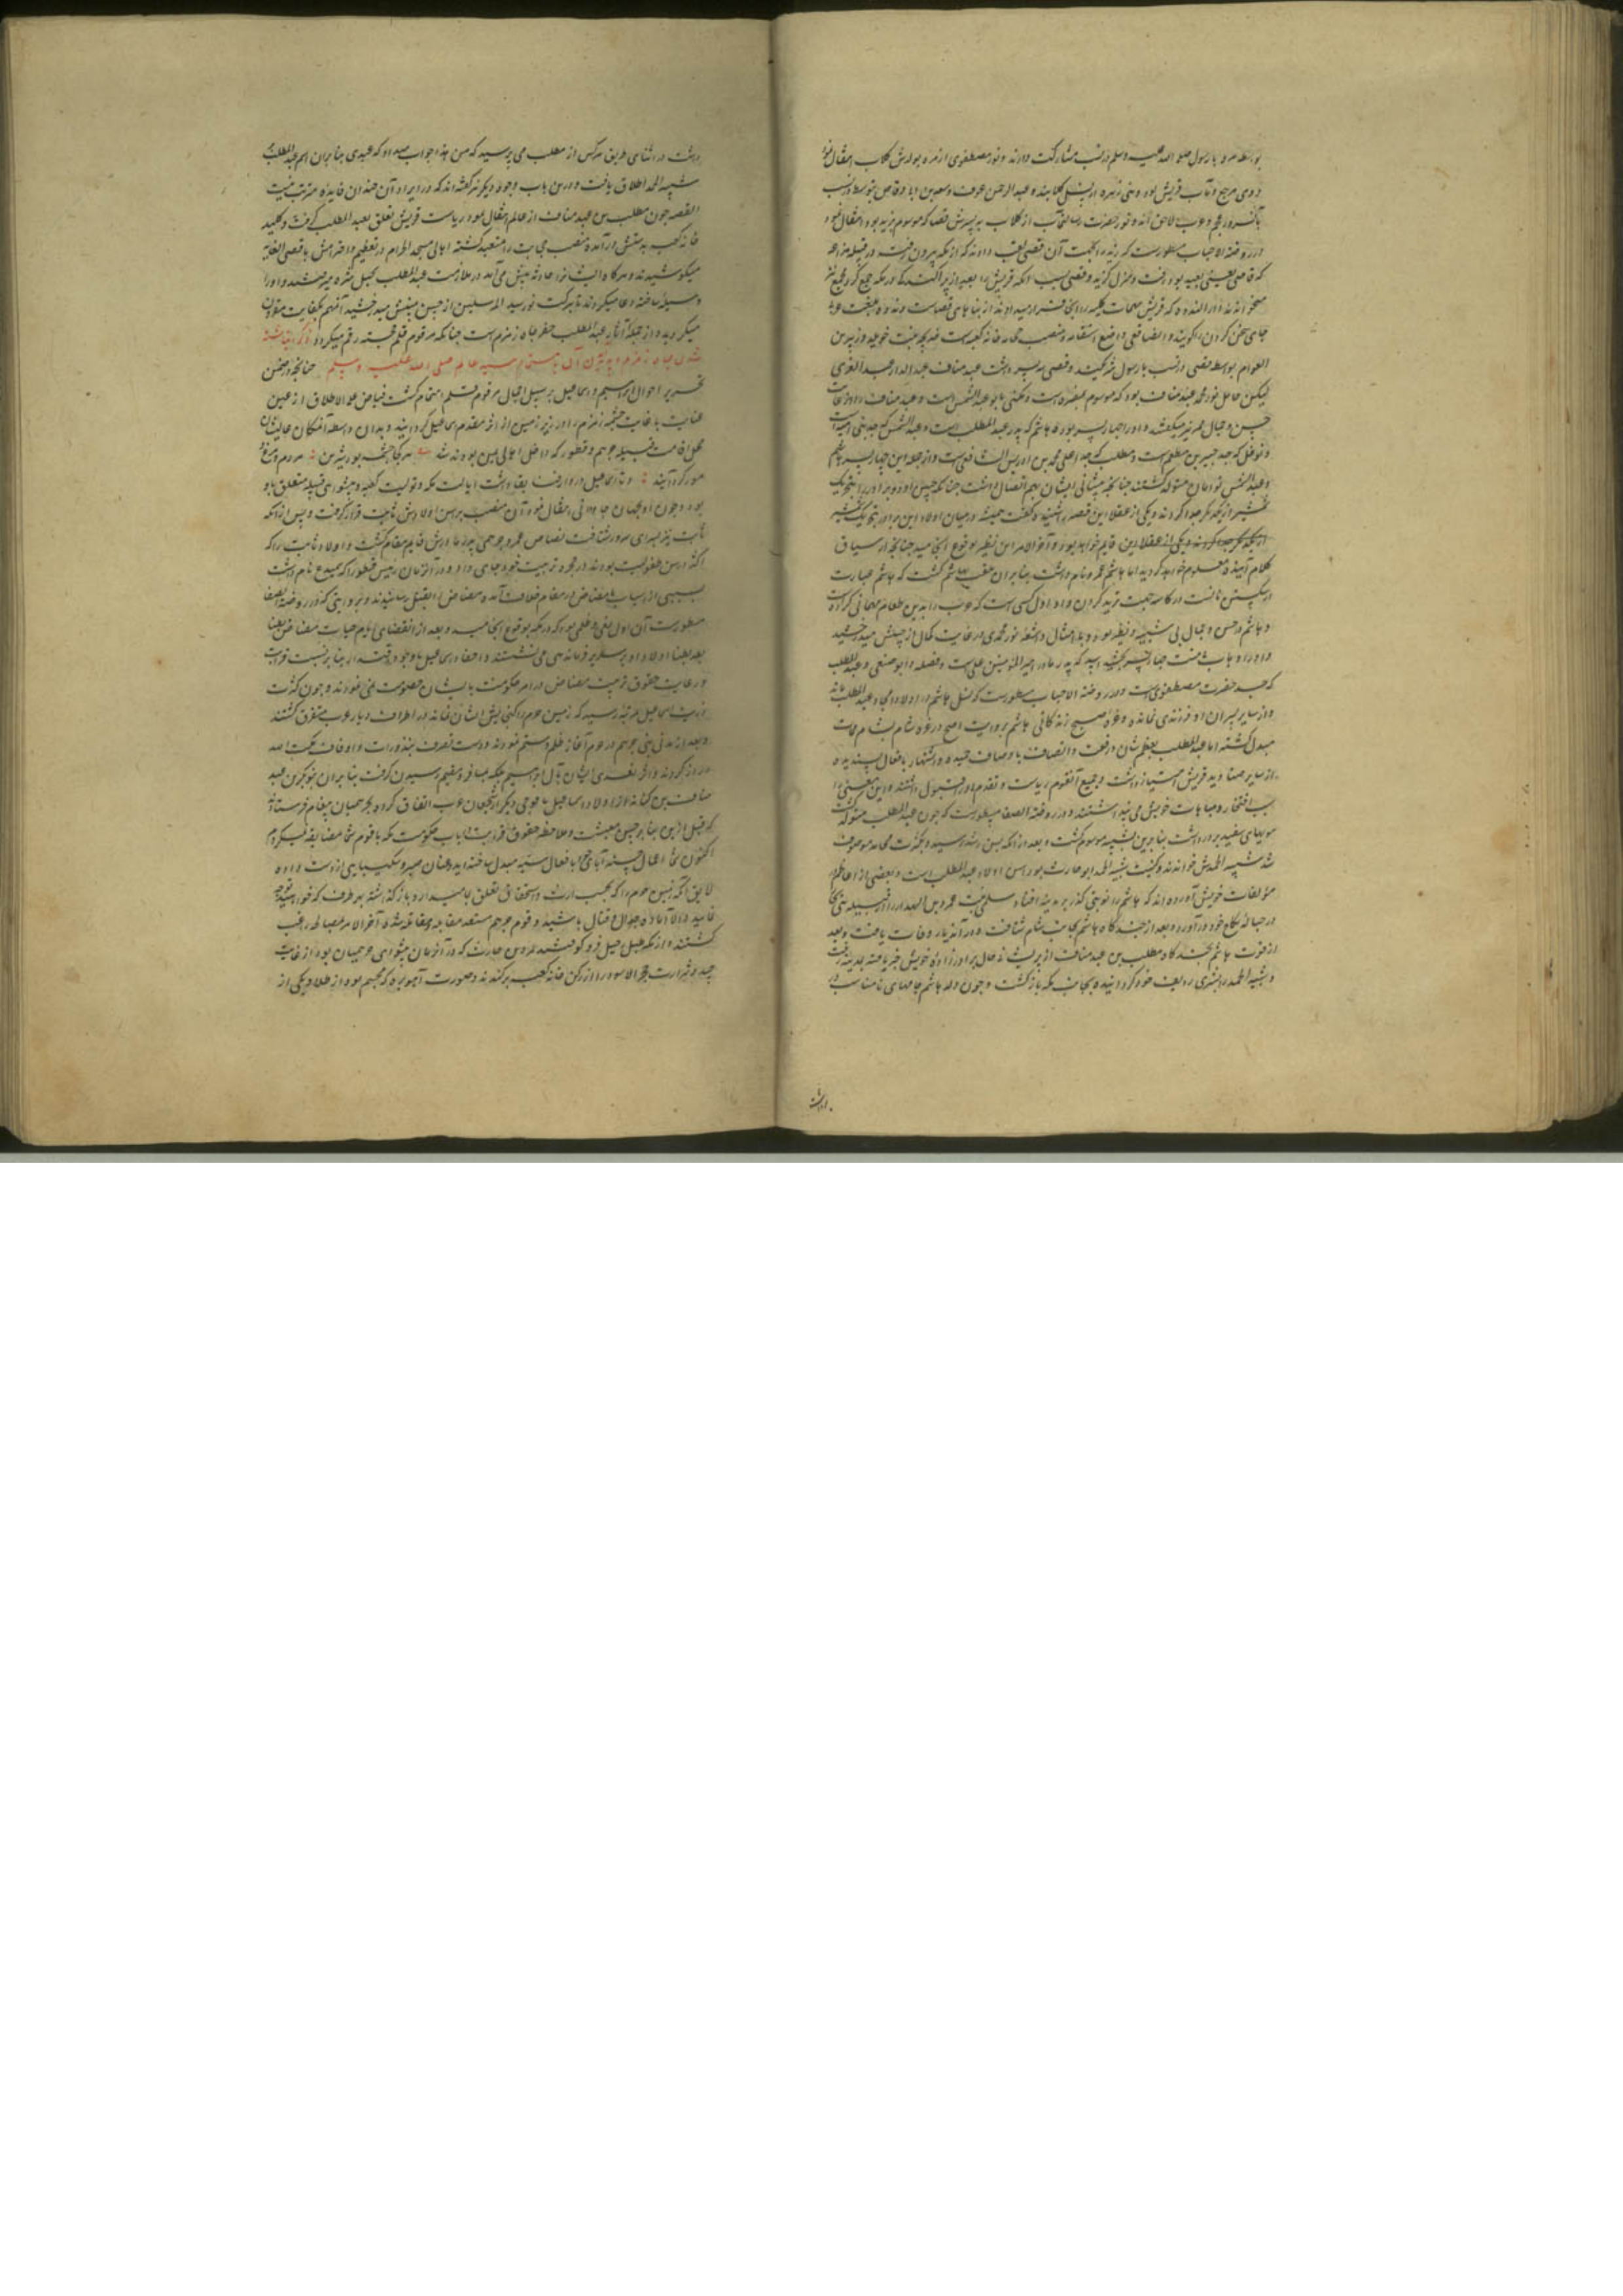 بواسطه مره با رسول صلی الله علیه وسلم در نسب مشارکت دارند و نور مصطفوی از مره بولدش کلاب انتقال نمود
زوی مرجع و مآب قریش بود و بنی زهره از نسل کلابند و عبد الرحمن عوف و سعد بن ابی وقاص بتوسط در نسب
بآنسرور عجم و عرب لاحق اند و نور حضرت رسالتمآب از کلاب بر پسرش قصی که موسوم بزید بود انتقال نمود
در روضة الاحباب مسطورست که زید را بجهت آن قصی لقب دادند که از مکه بیرون رفت و در قبیله قضاعه
که قاصی یعنی بعید بود رفت و منزل گزید و قصی بسبب آنکه قریش را بعد از پراکندگی در مکه جمع کرد مجمع نیز
میخوانند و دار الندوه که قریش مهمات کلیه را آنجا قرار میدادند از بناهای قصی است و ندوه بلغت عرب
جای سخن کردن را گویند و ایضا قصی واضع سقایه و منصب حجابه خانه کعبه است خدیجه بنت خویلد و زبیر بن
العوام بواسطه قصی در نسب با رسول شریکند و قصی سه پسر داشت عبد مناف عبد الدار عبد العزی
لیکن حامل نور محمد عبد مناف بود که موسوم بمغیره است و مکنی بابو عبد الشمس است و عبد مناف را از غایت
حسن و جمال قمر نیز میگفتند و او را چهار پسر بود ه هاشم که پدر عبد المطلب است و عبد الشمس که جد بنی امیه است
و نوفل که جد جبیر بن مطعم است و مطلب که جد اعلی محمد بن ادریس الشافعی است و از جمله این چهار پسر هاشم
و عبد الشمس توامان متولد گشتند چنانچه پیشانی ایشان بهم اتصال داشت
شمشیر از یکدیگر جدا کردند و یکی از عقلا این قصه را شنید و گفت همیشه در میان اولاد این برادر بتحریک شمشیر
کلام آینده معلوم خواهد گردید اما هاشم عمرو نام داشت بنابران ملقب بهاشم گشت که هاشم عبارت
از شکستن نانست در کاسه جهت ترید کردن و او اول کسی است که عرب را بدین طعام مهمانی کرده است
و هاشم در حسن و جمال بی شبیه و نظیر بود و اشعه نور محمدی در غایت کمال از جبینش میدرخشید
که جد حضرت مصطفوی است و در روضة الاحباب مسطورست که نسل هاشم در اولاد امجاد عبد المطلب ماند
و از سایر پسران او فرزندی نمانده و
مبدل گشته اما عبد المطلب بعظم شان و رفعت و اتصاف باوصاف حمیده و اشتهار بافعال پسندیده
از سایر صنادید قریش امتیاز داشت و جمیع آنقوم ریاست و تقدم او را قبول داشتند و این معنی را
سبب افتخار و مباهات خویش می پنداشتند و در روضة الصفا مسطورست که چون عبد المطلب متولد گشت
مویهای سفید بر سر داشت بنابرین بشیبه موسوم گشت و بعد از آنکه بسن رشد رسید و بکثرت محامد موصوف
شد شیبه الحمدش خواندند و کنیت شیبه الحمد ابو حارث بود
مولفات خویش آورده اند که هاشم را نوبتی گذر بر مدینه افتاد و سلمی بنت عمرو بن لبید را از قبیله بنی نجار
در حباله نکاح خود در آورد و بعد از چندگاه هاشم بجانب شام شتافت و در آن دیار وفات یافت و بعد
از فوت هاشم بچندگاه مطلب بن عبد مناف از پریشانی حال برادرزاده خویش خبر یافته بمدینه رفت
و شیبه الحمد را بتندی ردیف خود گردانیده بجانب مکه بازگشت و چون ولد هاشم جامهای نامناسب در
داشت
داشت در اثنای طریق هرکس از مطلب می پرسید که من هذا جواب میداد که عبدی بنابران اسم عبد المطلب بر
شیبه الحمد اطلاق یافت و درین باب وجوه دیگر نیز گفته اند که در ایراد آن چندان فایده مترتب نیست
القصه چون مطلب بن عبد مناف از عالم انتقال نمود ریاست قریش تعلق بعبد المطلب گرفت و کلید
خانه کعبه بدستش درآمده منصب حجابت را متعهد گشته اهالی مسجد الحرام در تعظیم و احترامش باقصی الغایه
میکوشیدند و هرگاه ایشانرا حادثه پیش می آمد در ملازمت عبد المطلب بجبل ثبیر میرفتند و او را
وسیله ساخته دعا میکردند تا ببرکت نور سید المرسلین از جبین مبینش میدرخشید آنمهم بکفایت مقرون
میگردید و از جمله آثار عبد المطلب حفر چاه زمزم است چنانکه مرقوم قلم خجسته رقم میگردد ذکر انباشته
شدن چاه زمزم و پدید شدن آن باهتمام سید عالم صلی الله علیه وسلم چنانچه در ضمن
تحریر احوال ابراهیم و اسماعیل بر سبیل اجمال مرقوم قلم اهتمام گشت فیاض علی الاطلاق از عین
عنایت بی غایت چشمه زمزم را در زیر زمین از اثر مقدم اسماعیل گردانید و بدان واسطه آنمکان عالیشان
محل اقامت قبیله جرهم و قطورا که داخل اهالی یمن بودند شد هر کجا چشمه بود شیرین مردم و مرغ و
مور گرد آیند و تا اسماعیل در دار فنا بقا داشت ایالت مکه و تولیت کعبه و پیشوایی قبیله متعلق باو
بود و چون او بجهان جاودانی انتقال نمود آن منصب بر اسن اولادش ثابت قرار گرفت و پس از آنکه
ثابت نیز بسرای سرور شتافت مضاض عمرو جرهمی پدر مادرش قایم مقام گشت و اولاد ثابت را که
اکثر در سن طفولیت بودند در حجر تربیت خود جای داد و در آنزمان رئیس قطورا که سمیدع نام داشت
بسببی از اسباب با مضاض در مقام خلاف آمده مضاض او را بقتل رسانید و بروایتی که در روضة الصفا
مسطورست آن اول بغی و ظلمی بود که در مکه بوقوع انجامید و بعد از انقضای ایام حیات مضاض بطنا
بعد بطنا اولاد او بر سریر فرماندهی می نشستند و احفاد اسماعیل با وجود اقتدار بنابر نسبت قرابت
و رعایت حقوق تربیت مضاض در امر حکومت با ایشان خصومت نمی نمودند و چون کثرت
ذریت اسماعیل بمرتبه رسید که زمین حرم را گنجایش ایشان نماند در اطراف دیار عرب متفرق گشتند
و بعد از مدتی بنی جرهم در حرم آغاز ظلم و ستم نمودند و دست تصرف بنذورات و اوقاف مکه
دراز کردند و اثر تعدی ایشان بآل ابراهیم بلکه بمسافر و مقیم رسیدن گرفت بنابران بنو بکر بن عبد
مناف بن کنانه از اولاد اسماعیل با فوجی دیگر از شجعان عرب اتفاق کرده بجرهمیان پیغام فرستادند
که قبل ازین بنابر حسن معیشت و ملاحظه حقوق قرابت در باب حکومت مکه با قوم شما مضایقه نمیکردیم
اکنون شما اعمال حسنه آبای خود را بافعال سیئه مبدل ساخته اید و عنان صبر و شکیبایی از دست داده
لایق آنکه زمین حرم را که بحسب ارث و استحقاق تعلق بما میدارد باز گذاشته بر طرف که خواهید توجه
نمایید والا آماده جدال و قتال باشید و قوم جرهم مستعد مقابله و مقاتله شده آخر الامر بمصالحه راغب
گشتند و از مکه طبل رحیل فرو کوفتند عمرو بن حارث که در آنزمان پیشوای جرهمیان بود از غایت
حسد و شرارت حجر الاسود را از رکن خانه کعبه برکند و صورت آهوبره که مجسم بود از طلا و یکی از